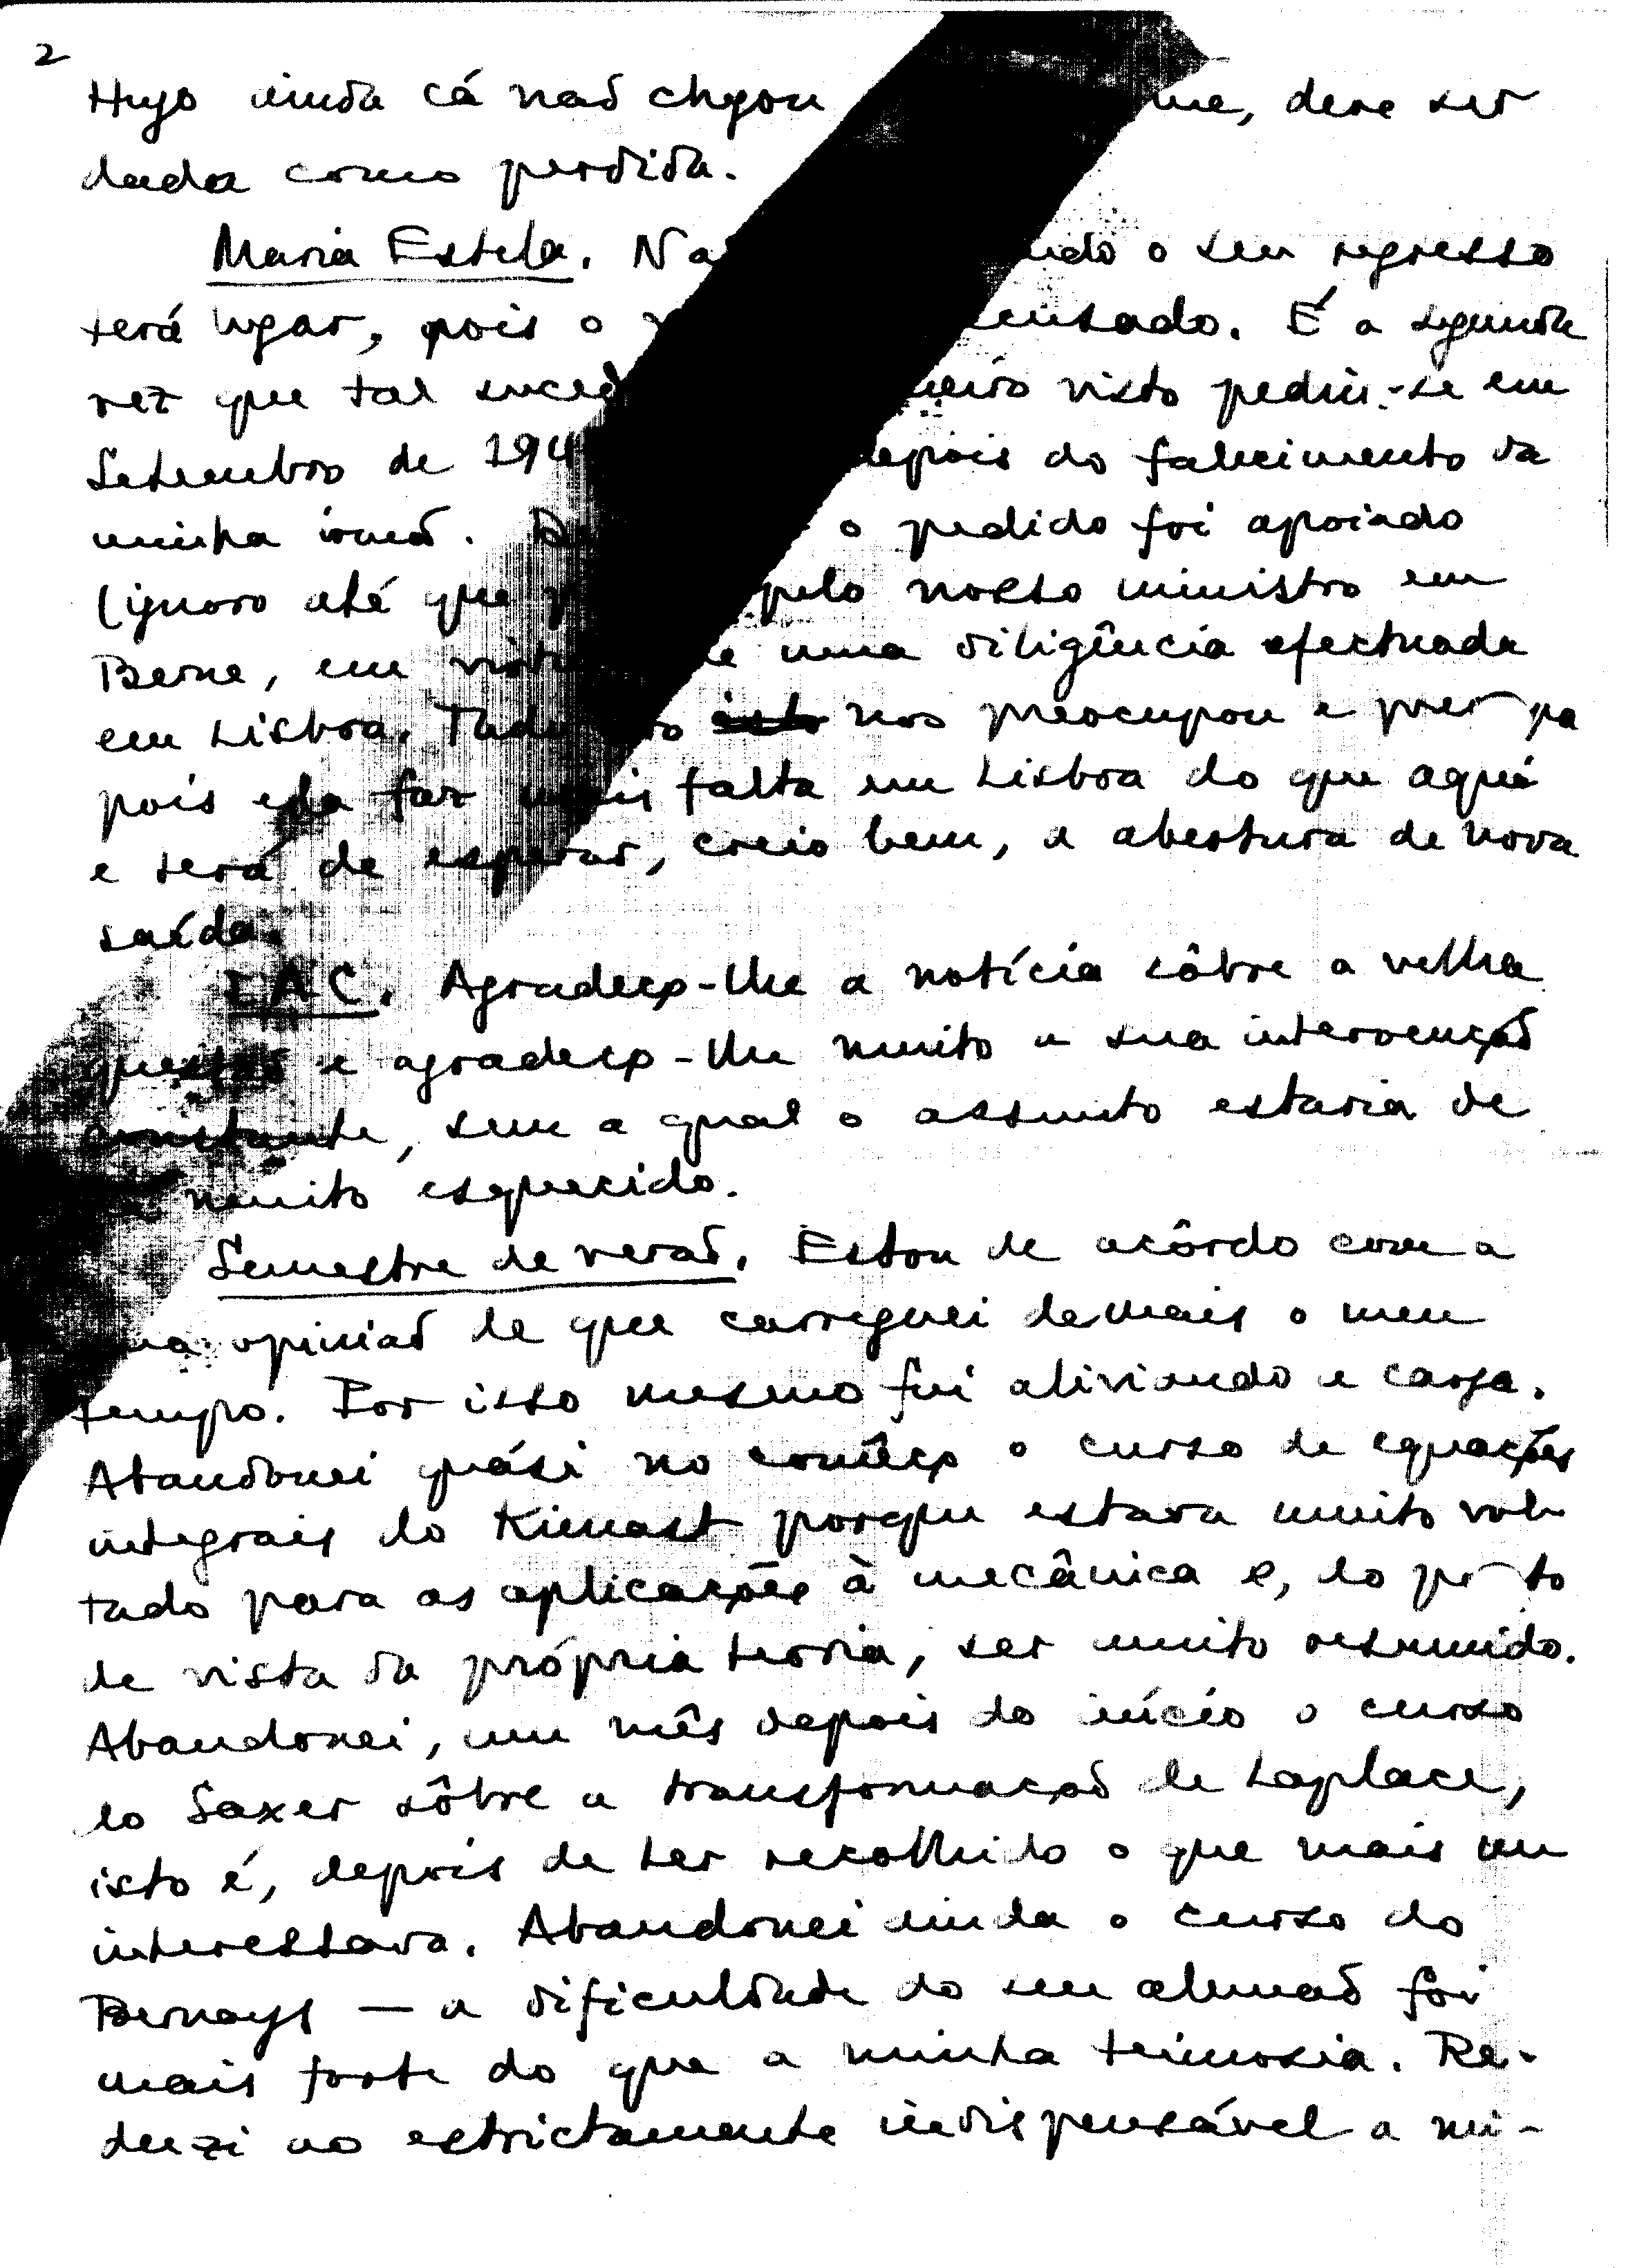 2
Hugo ainda cá não chegou me, deve ser
dada como perdida.
Maria Estela. Nã ndo o seu regresso
terá lugar, pois o v ensado. É a segunda
vez que tal suced meiro visto pediu-se em
Setembro de 194 depois do falecimento da
minha irmã. De o pedido foi apoiado
(ignoro até que p pelo nosso ministro em
Berne, em virtu de uma diligência efectuada
em Lisboa. Tudo isto nos preocupou e
pois ela faz mais falta em Lisboa do que aqui
e será de esperar, creio bem, a abertura de nova
saída.
IAC. Agradeço-lhe a notícia sôbre a velha
questão e agradeço-lhe muito a sua intervenção
constante, sem a qual o assunto estaria de
há muito esquecido.
Semestre de verão. Estou de acôrdo com a
sua opinião de que carreguei demais o meu
tempo. Por isso mesmo fui aliviando a carga.
Abandonei quási no comêço o curso de equações
integrais do Kienast porque estava muito vol-
tado para as aplicações à mecânica e, do ponto
de vista da própria teoria, ser muito resumido.
Abandonei, um mês depois do início o curso
do Saxer sôbre a transformação de Laplace,
isto é, depois de ter recolhido o que mais me
interessava. Abandonei ainda o curso do
Bernays — a dificuldade do seu alemão foi
mais forte do que a minha teimosia. Re-
duzi ao estrictamente indispensável a mi-